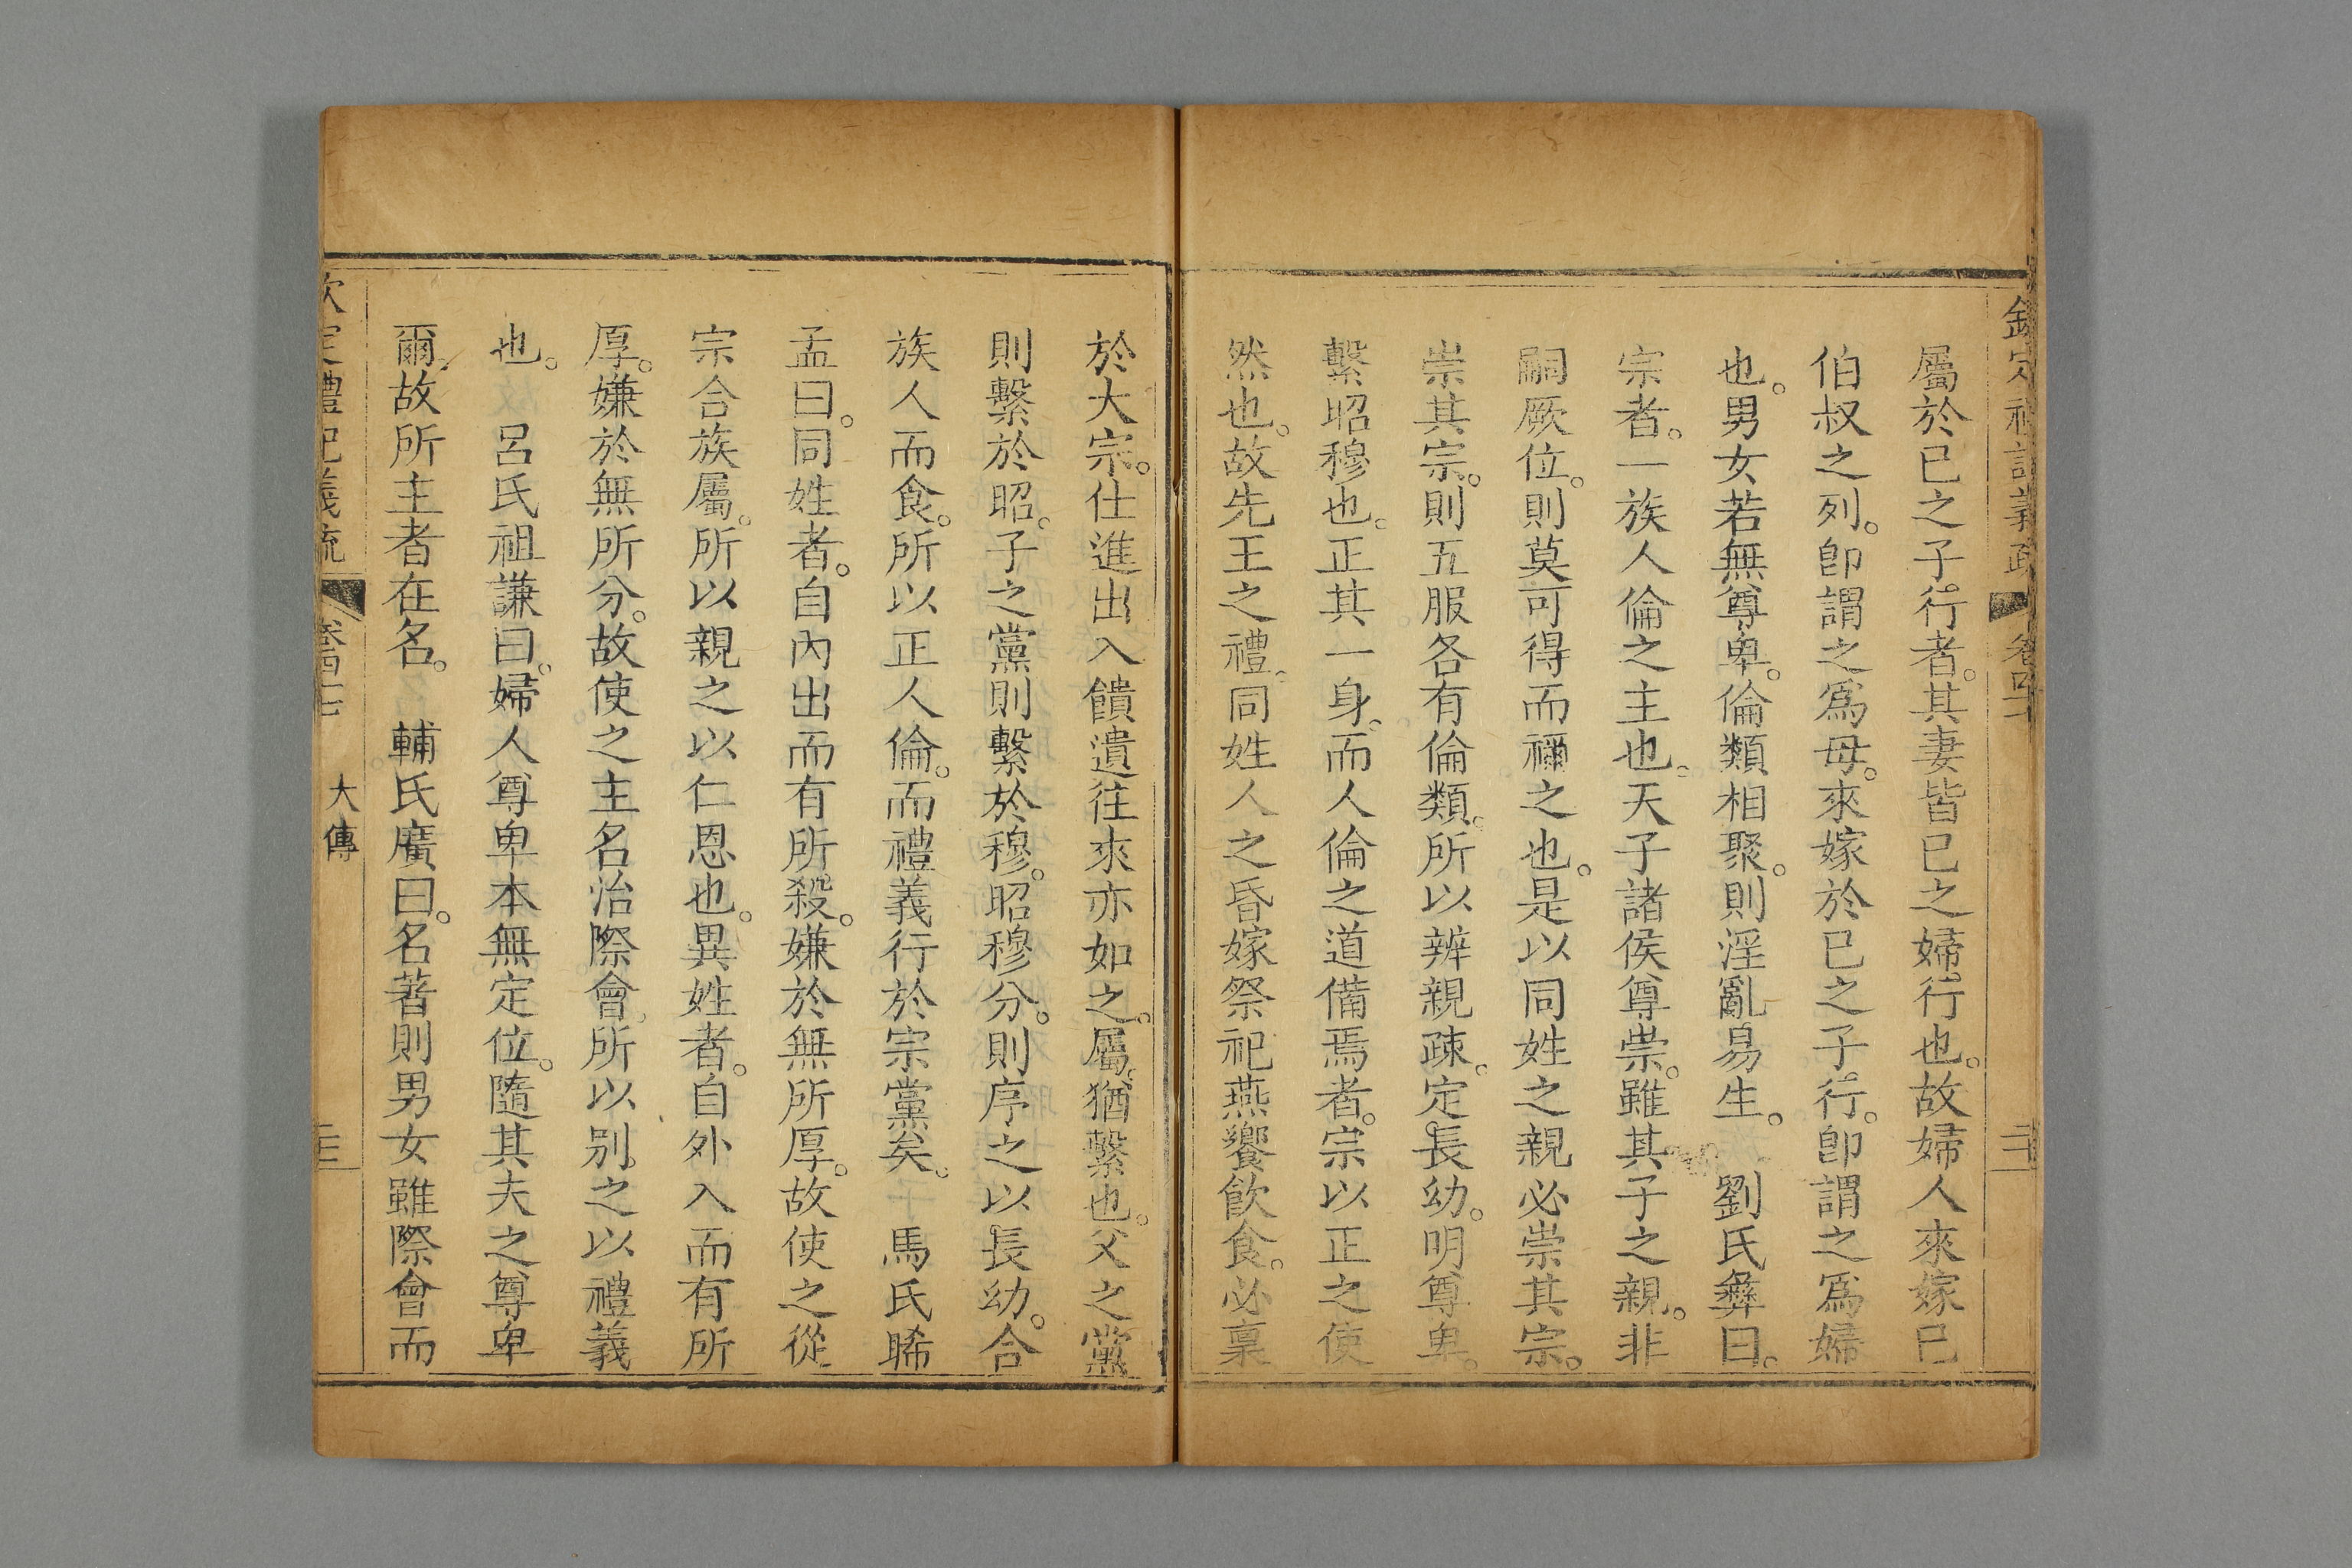 屬於已之子行者。其妻皆已之婦行也。故婦人來嫁已
伯叔之列。卽謂之爲母。來嫁於已之子行。卽謂之爲婦
也。男女若無尊卑。倫類相聚。則淫亂易生。　劉氏彝曰。
宗者。一族人倫之主也。天子諸侯尊崇。雖其子之親。非
嗣厥位。則莫可得而禰之也。是以同姓之親必崇其宗。
崇其宗。則五服各有倫類。所以辨親疎。定長幼。明尊卑。
繫昭穆也。正其一身。而人倫之道備焉者。宗以正之使
然也。故先王之禮。同姓人之昏嫁祭祀燕饗飲食。必稟
於大宗。仕進出入饋遺往來亦如之。屬。猶繫也。父之黨
則繫於昭。子之黨則繫於穆。昭穆分。則序之以長幼。合
族人而食。所以正人倫。而禮義行於宗黨矣。　馬氏晞
孟曰。同姓者。自內出而有所殺。嫌於無所厚。故使之從
宗合族屬。所以親之以仁恩也。異姓者。自外入而有所
厚。嫌於無所分。故使之主名治際會。所以别之以禮義
也。　呂氏祖謙曰。婦人尊卑本無定位。隨其夫之尊卑
爾。故所主者在名。　輔氏廣曰。名著則男女雖際會而
大傳